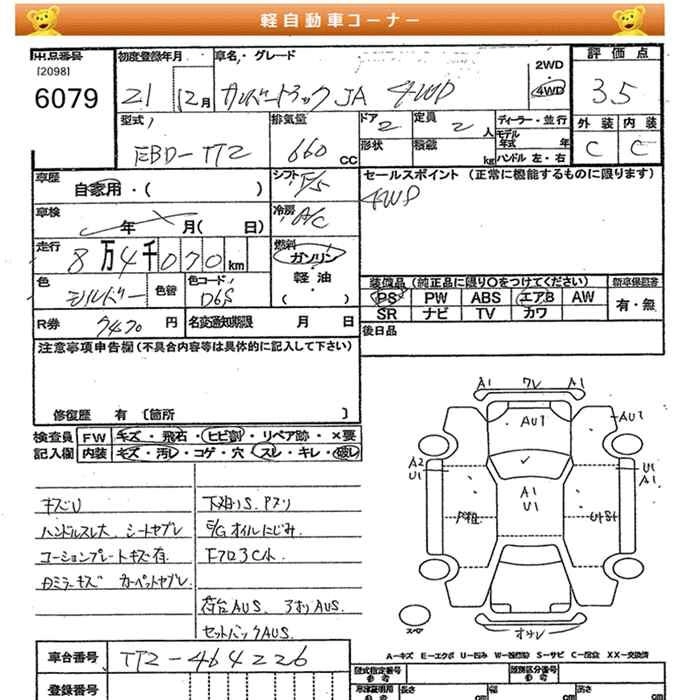 軽自動車コーナー
出品番号
[2098]
6079
初度登録年月
21 12月
車名・グレード
JA 4WD
2WD
4WD
評価点
3.5
外装 内装
C C
型式
EBD-TT2
排気量
660 CC
ドア
2
定員
2 人
形状
積載
kg
ディーラー・並行
モデル
年式 年
ハンドル 左・右
車歴
自家用・( )
シフト
F/5
セールスポイント (正常に機能するものに限ります)
4WD
車検
年 月( 日)
冷房
A/C
走行
8万4千070km
燃料
ガソリン
軽油
( )
色
シルバー
色替
色コード
R券
7470 円
名変通知期限 月 日
装備品(純正品に限り○をつけてください)
PS PW ABS エアB AW
SR ナビ TV カワ
新車保証書
有・無
後日品
注意事項申告欄(不具合内容等は具体的に記入して下さい)
修復歴 有 〔箇所 〕
検査員
記入欄
FW キズ・飛石・ヒビ割・リペア跡・×要
内装 キズ・汚レ・コゲ・穴・スレ・キレ・破レ
キズU
下廻りS.
ハンドルスレ大
E/Gオイルにじみ
コーションプレートキズ有
荷台AUS. アオリAUS.
セットバックAUS
A1 ワレ A1
AU1
AU1
A2
U1
U1
A1
A1
U1
スペア
A-キズ E-エクボ U-凹み W-補修跡 S-サビ C-腐蝕 XX-交換済
車台番号
TT2-464226
登録番号
型式指定番号
参考
類別区分番号
参考
車庫証明用
参考
長さ cm
幅 cm
高さ cm